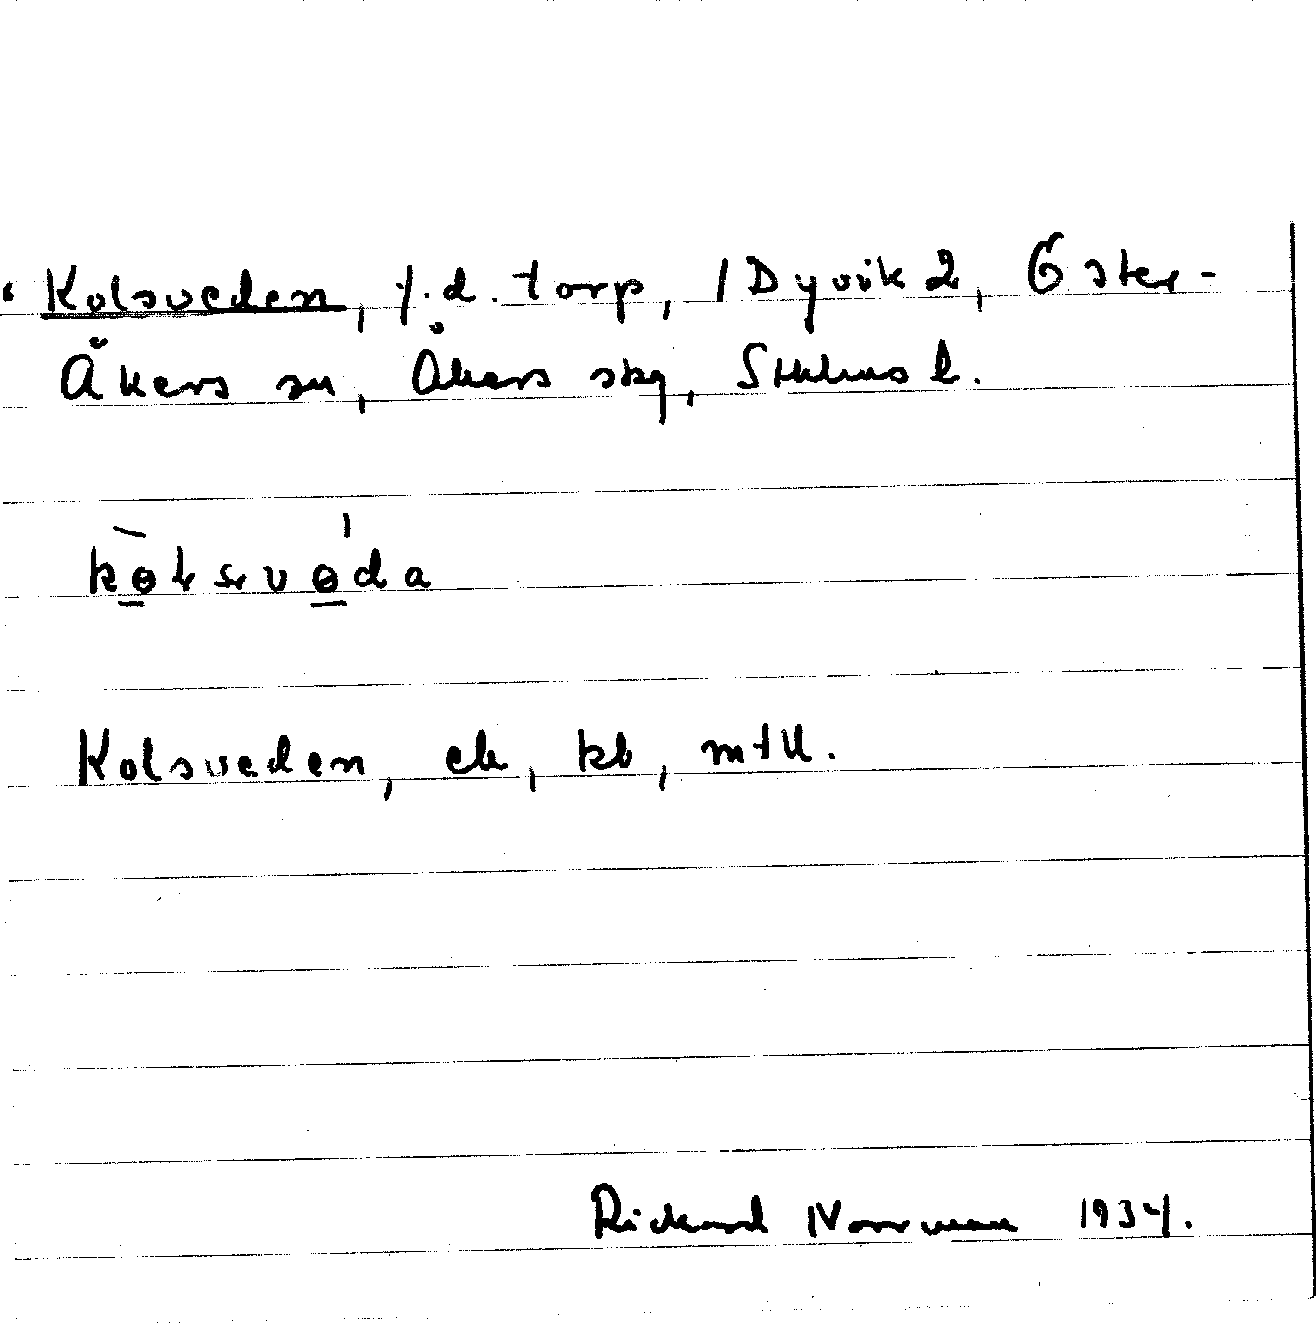 Kolsveden, f.d. torp, 1 Dyvik 2, Öster-
Åkers sn, Åkers skg, Sthlms l.
Kolsveden, ek, kb, mtll.
Rickard Norrman 1934.